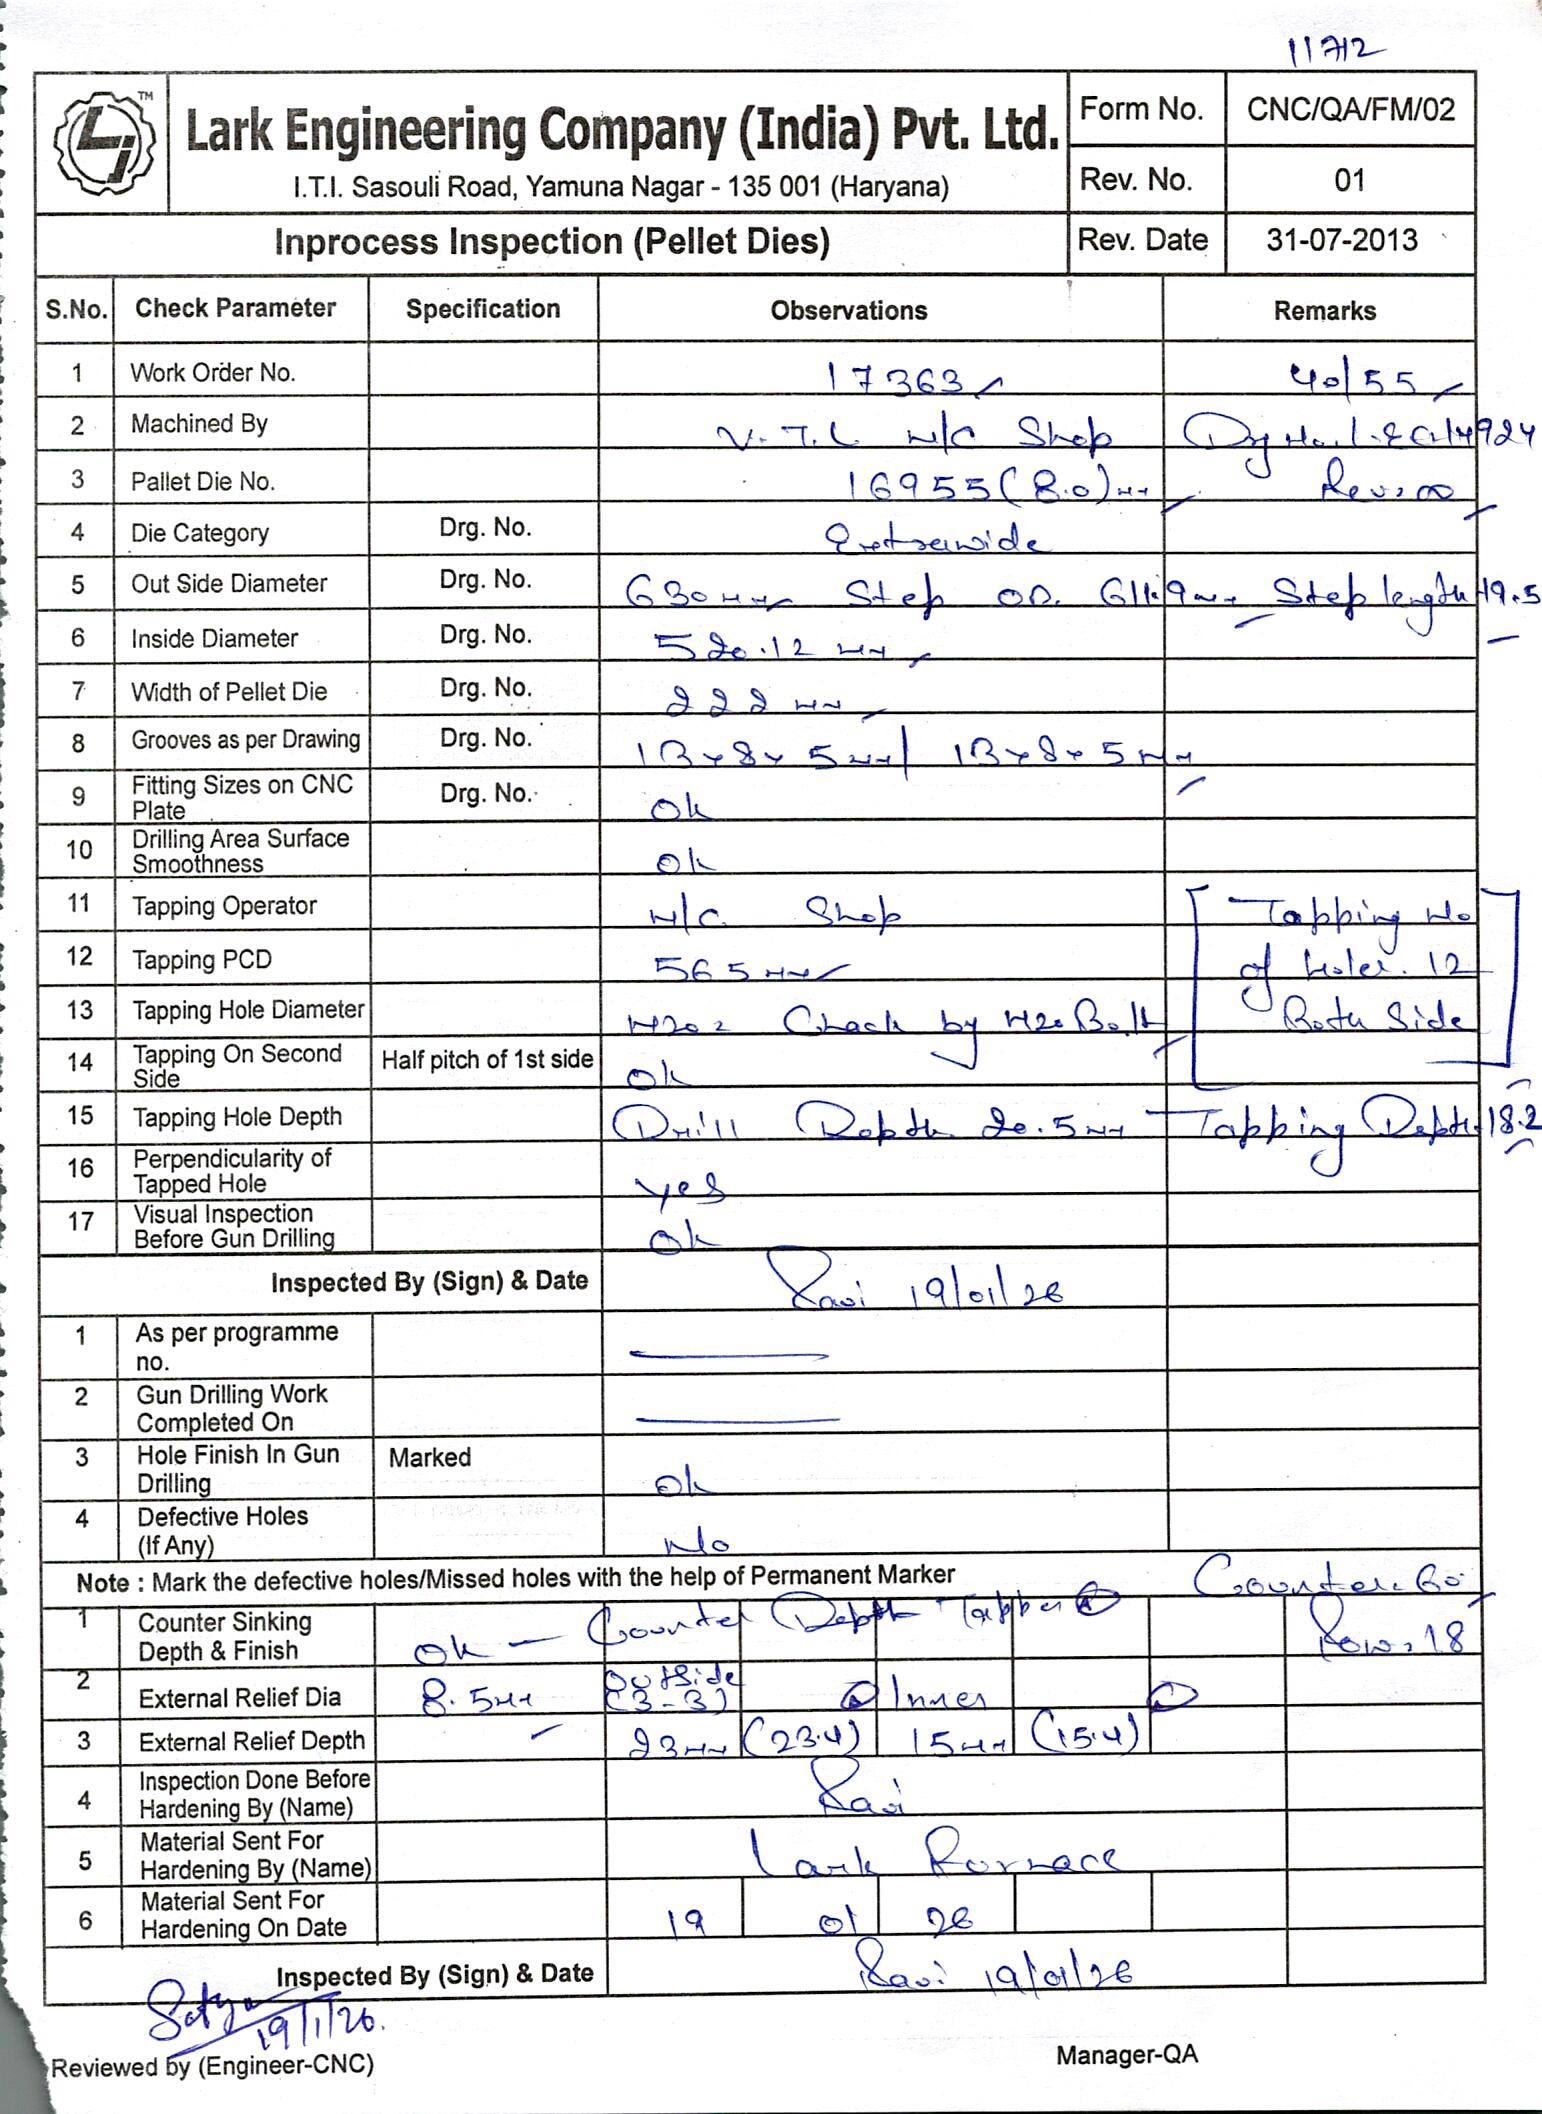 11712
TM
Lark Engineering Company (India) Pvt. Ltd.
I.T.I. Sasouli Road, Yamuna Nagar - 135 001 (Haryana)
Form No. CNC/QA/FM/02
Rev. No. 01
Inprocess Inspection (Pellet Dies) Rev. Date 31-07-2013
S.No. Check Parameter Specification Observations Remarks
1 Work Order No. 17363 40/55
2 Machined By V.T.L M/C Shop Drg No. 14924
3 Pallet Die No. 16955 (8.0)mm Rev. 00
4 Die Category Drg. No. Extrawide
5 Out Side Diameter Drg. No. 630mm Step OD. 611.9mm Step length 19.5
6 Inside Diameter Drg. No. 520.12 mm
7 Width of Pellet Die Drg. No. 222 mm
8 Grooves as per Drawing Drg. No. 13x8x5mm / 13x8x5mm
9 Fitting Sizes on CNC Plate Drg. No. Ok
10 Drilling Area Surface Smoothness Ok
11 Tapping Operator M/C Shop Tapping No
12 Tapping PCD 565mm of holes. 12
13 Tapping Hole Diameter M20 = Chack by M20 Bolt Both Side
14 Tapping On Second Side Half pitch of 1st side Ok
15 Tapping Hole Depth Drill Depth 20.5mm Tapping Depth 18.2
16 Perpendicularity of Tapped Hole Yes
17 Visual Inspection Before Gun Drilling Ok
Inspected By (Sign) & Date Ravi 19/01/26
1 As per programme no.
2 Gun Drilling Work Completed On
3 Hole Finish In Gun Drilling Marked Ok
4 Defective Holes (If Any) No
Note : Mark the defective holes/Missed holes with the help of Permanent Marker Counter. 60
1 Counter Sinking Depth & Finish Ok — Counter Depth Tapper Row. 18
2 External Relief Dia 8.5mm Outside (3-3) Inner
3 External Relief Depth 23mm (23.4) 15mm (15.4)
4 Inspection Done Before Hardening By (Name) Ravi
5 Material Sent For Hardening By (Name) Lark Furnace
6 Material Sent For Hardening On Date 19 01 26
Inspected By (Sign) & Date Ravi 19/01/26
Satya
19/1/26.
Reviewed by (Engineer-CNC) Manager-QA